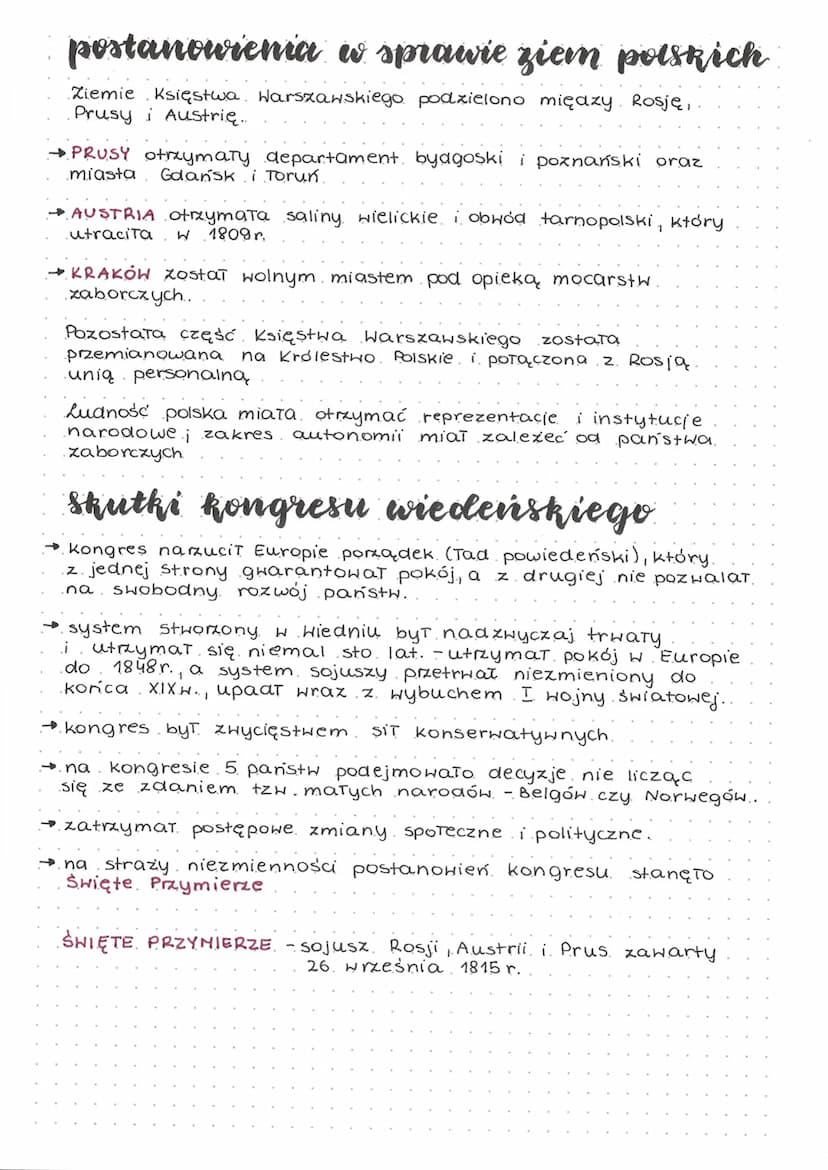 postanowienia w sprawie ziem polskich
Ziemie Księstwa Warszawskiego podzielono między Rosję,
Prusy i Austrię.
→ PRUSY otrzymały departament bydgoski i poznański oraz
miasta Gdańsk i Toruń
→ AUSTRIA otrzymała saliny wielickie i obwód tarnopolski, który
utraciła w 1809r.
→ KRAKÓW został wolnym miastem pod opieką mocarstw
zaborczych.
Pozostała część Księstwa Warszawskiego została
przemianowana na Królestwo Polskie i połączona z Rosją
unią personalną
Ludność polska miała otrzymać reprezentacje i instytucje
narodowe; zakres autonomii miał zależeć od państwa
zaborczych
skutki kongresu wiedeńskiego
→ kongres narzucił Europie porządek (ład powiedeński), który
z jednej strony gwarantował pokój, a z drugiej nie pozwalał
na swobodny rozwój państw.
→ system stworzony w Wiedniu był nadzwyczaj trwały
i utrzymał się niemal sto lat. - utrzymał pokój w Europie
do 1848r., a system sojuszy przetrwał niezmieniony do
końca XIXw., upadł wraz z wybuchem I wojny światowej.
→ kongres był zwycięstwem sił konserwatywnych
→ na kongresie 5 państw podejmowało decyzje nie licząc
się ze zdaniem tzw. małych narodów - Belgów czy Norwegów.
→ zatrzymał postępowe zmiany społeczne i polityczne.
→ na straży niezmienności postanowień kongresu stanęło
Święte Przymierze
ŚWIĘTE PRZYMIERZE - sojusz Rosji, Austrii i Prus zawarty
26 września 1815 r.